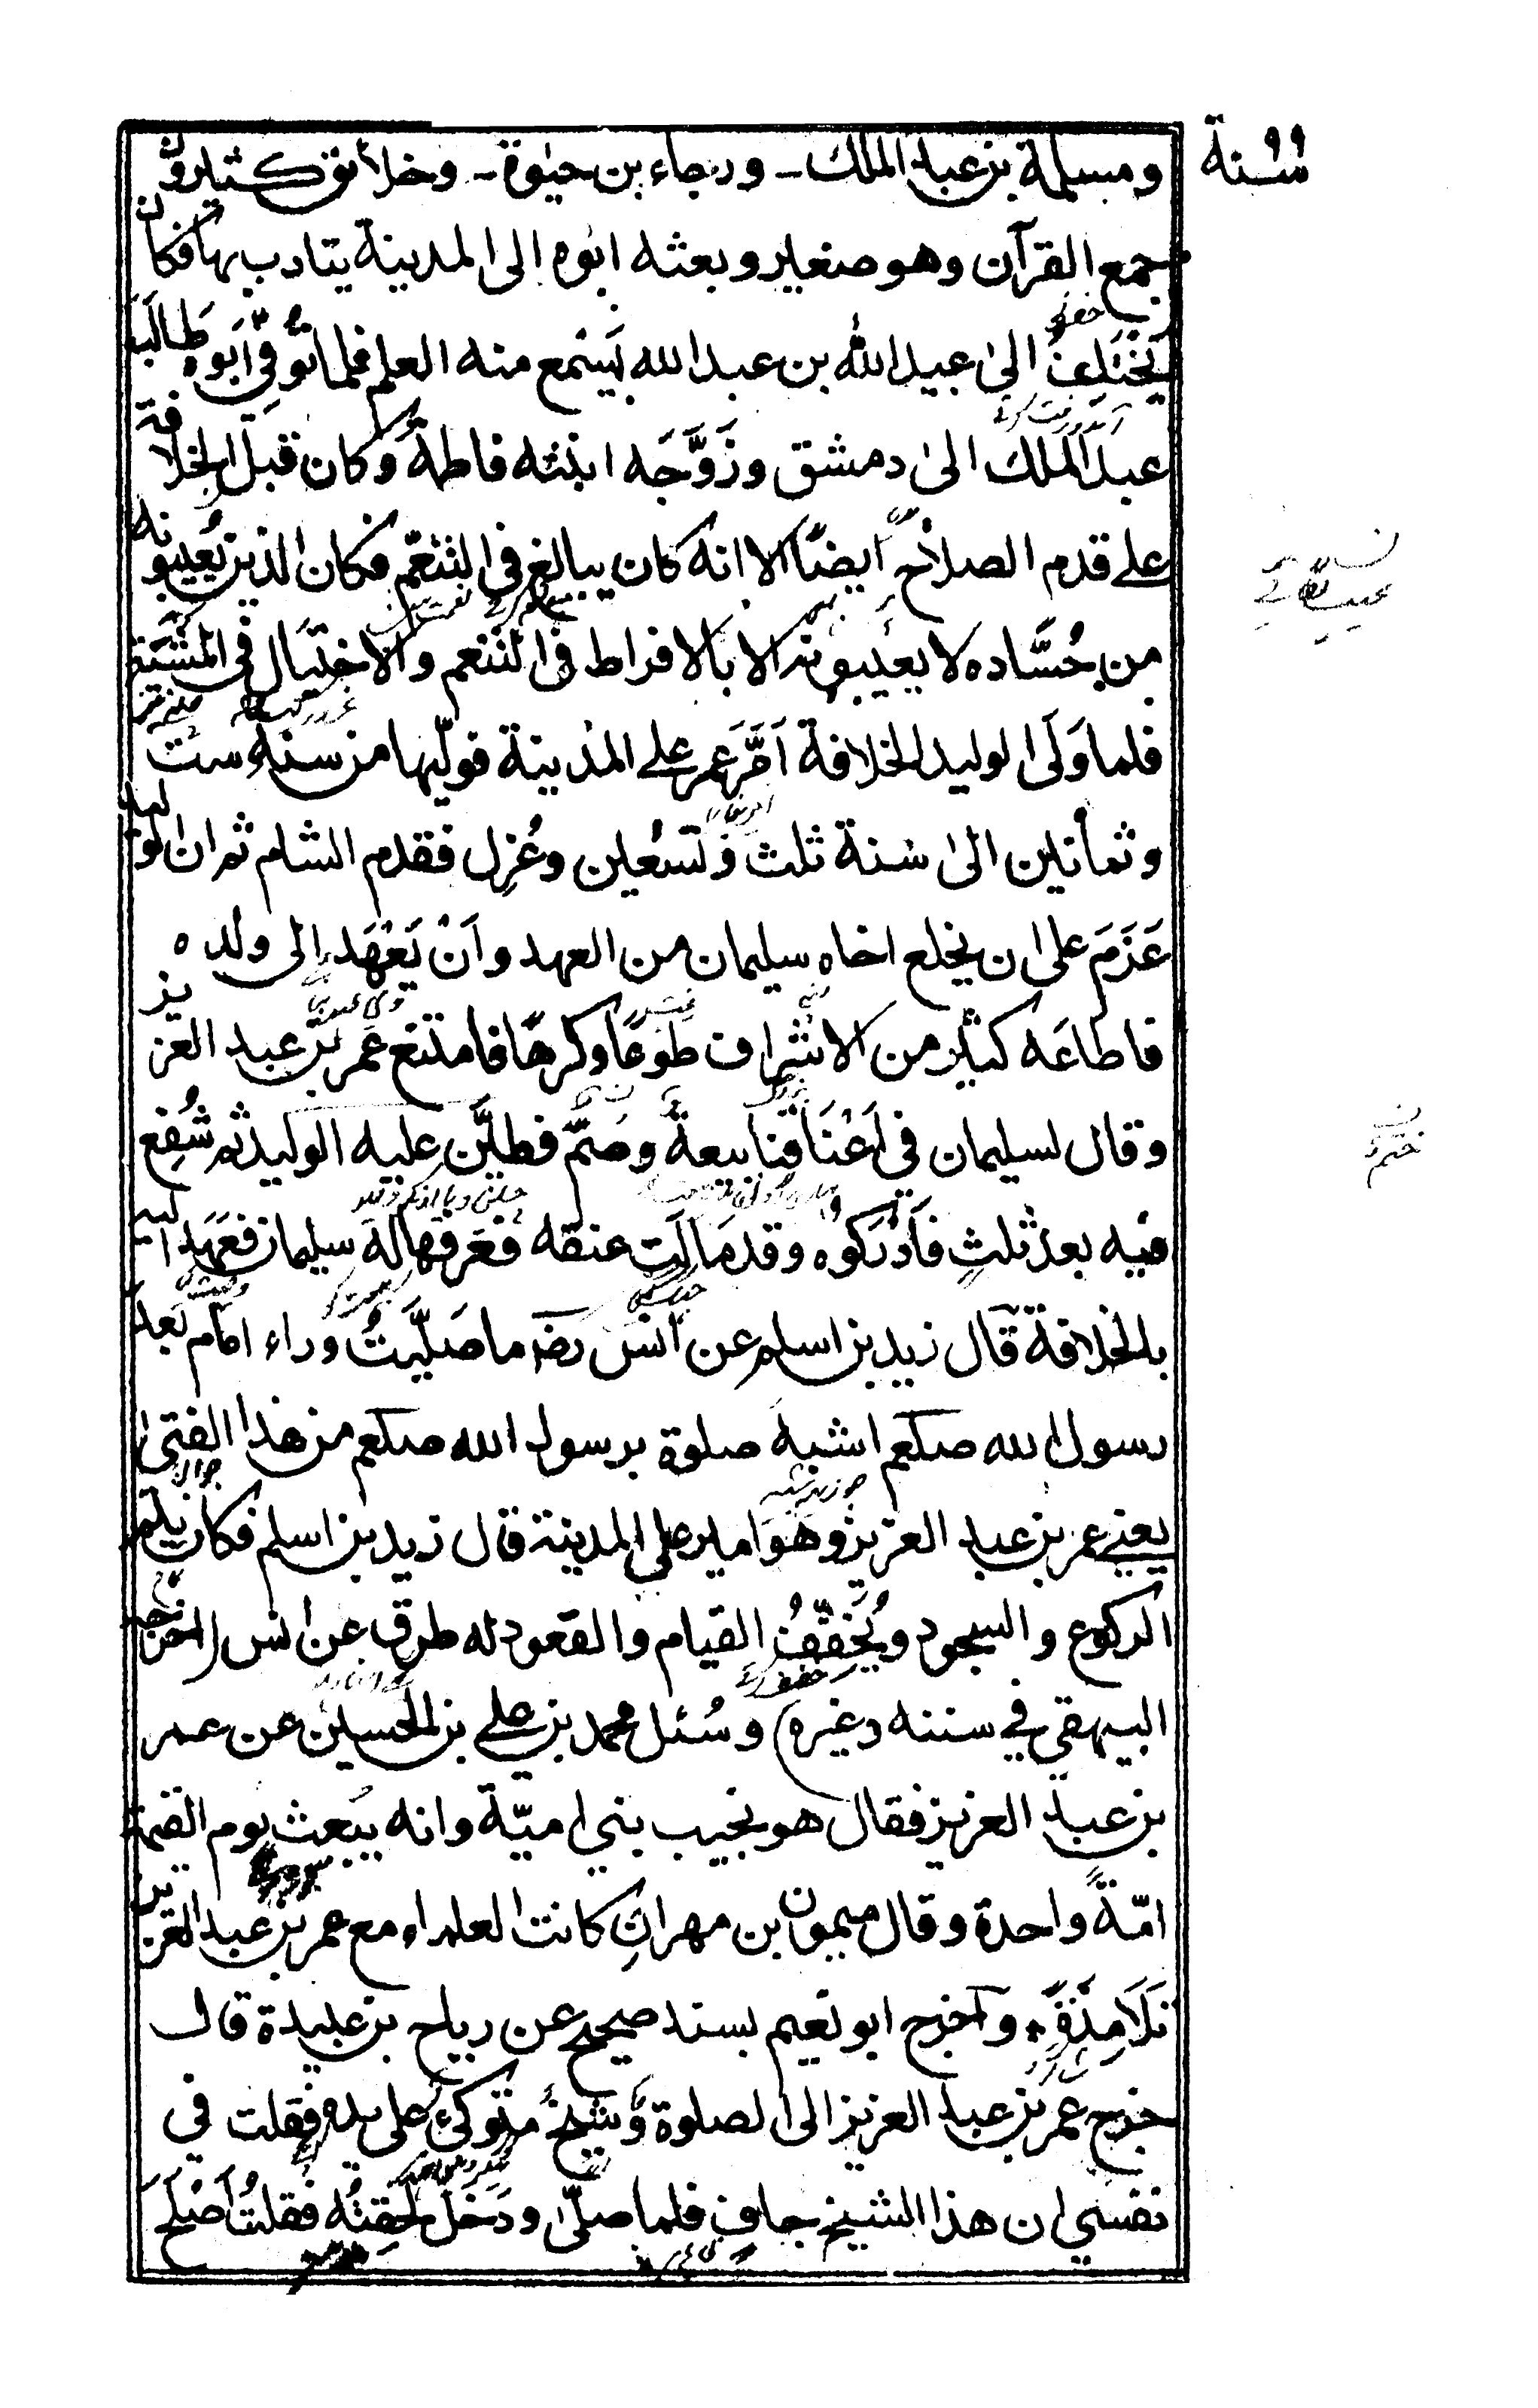 سنة ٩٩
ومسلمة بن عبد الملك - ورجاء بن حيٰوة - وخلائق كثيرون
جمع القرآن وهو صغير وبعثه ابوه الى المدينة يتادب بها فكان
يَخْتَلِفُ الىٰ عبيد الله بن عبد الله يَسْمع منه العلم فلما تُوُفِّيَ اَبَوه طَالَبَه
عبد الملك الىٰ دمشق وزَوَّجَه ابنته فاطمةَ وكان قبل الخلافة
علے قدم الصلاح ايضًا الا انه كان يبالغ فى التنعّم فكان الذين يُعيبونه
من حُسَّاده لا يعيبونه الا بالافراط فى التنعم والاختيال فى المشية
فلما وَلَى الوليد الخلافة اَمَّرَ عمر علے المدينة فوليها من سنة ست
وثمانين الىٰ سنة ثلث وتسعين وعُزِل فقدم الشام ثم ان الوليد
عَزَمَ على ان يخلع اخاه سليمان من العهد واَنْ يَعْهَدَ الى ولده
فاطاعَه كثير من الاشراف طوعًا وكرهًا فامتنع عمر بن عبد العزيز
وقال لسليمان في اَعْنَاقنا بيعةٌ وصَمَّم فطيَّن عليه الوليد ثم شُفِع
فيه بعد ثلثٍ فَاَدْرَكوه وقد مَالَت عنقه فعَرفها له سليمان فعَهَدَ اليه
بالخلافة قال زيد بن اسلم عن انس رضه ما صَلَّيْتُ وراء امام بَعد
رسول الله صلعم اشبهَ صلوة برسول الله صلعم من هٰذا الفتىٰ
يعنے عمر بن عبد العزيز وهو امير على المدينة قال زيد بن اسلم فكان يتم
الركوع والسجود ويُخَفِّفُ القيام والقعود له طرق عن انس (اخرجه
البيهقي في سننه وغيره) وسُئل محمد بن علے بن الحسين عن عمر
بن عبد العزيز فقال هو نجيب بني اميّة وانه يبعث يوم القيمة
امّةً واحدة وقال ميمون بن مهران كانت العلماء مع عمر بن عبد العزيز
تَلَامِذَةً * واخرج ابو نعيم بسند صحيح عن رباح بن عبيدة قال
خرج عمر بن عبد العزيز الى الصلوة وشيخ متوكئ على يده فقلت في
نفسي ان هذا الشيخ جافٍ فلما صلّىٰ ودَخَلَ لحِقتُه فقلتُ اَصْلَحَ